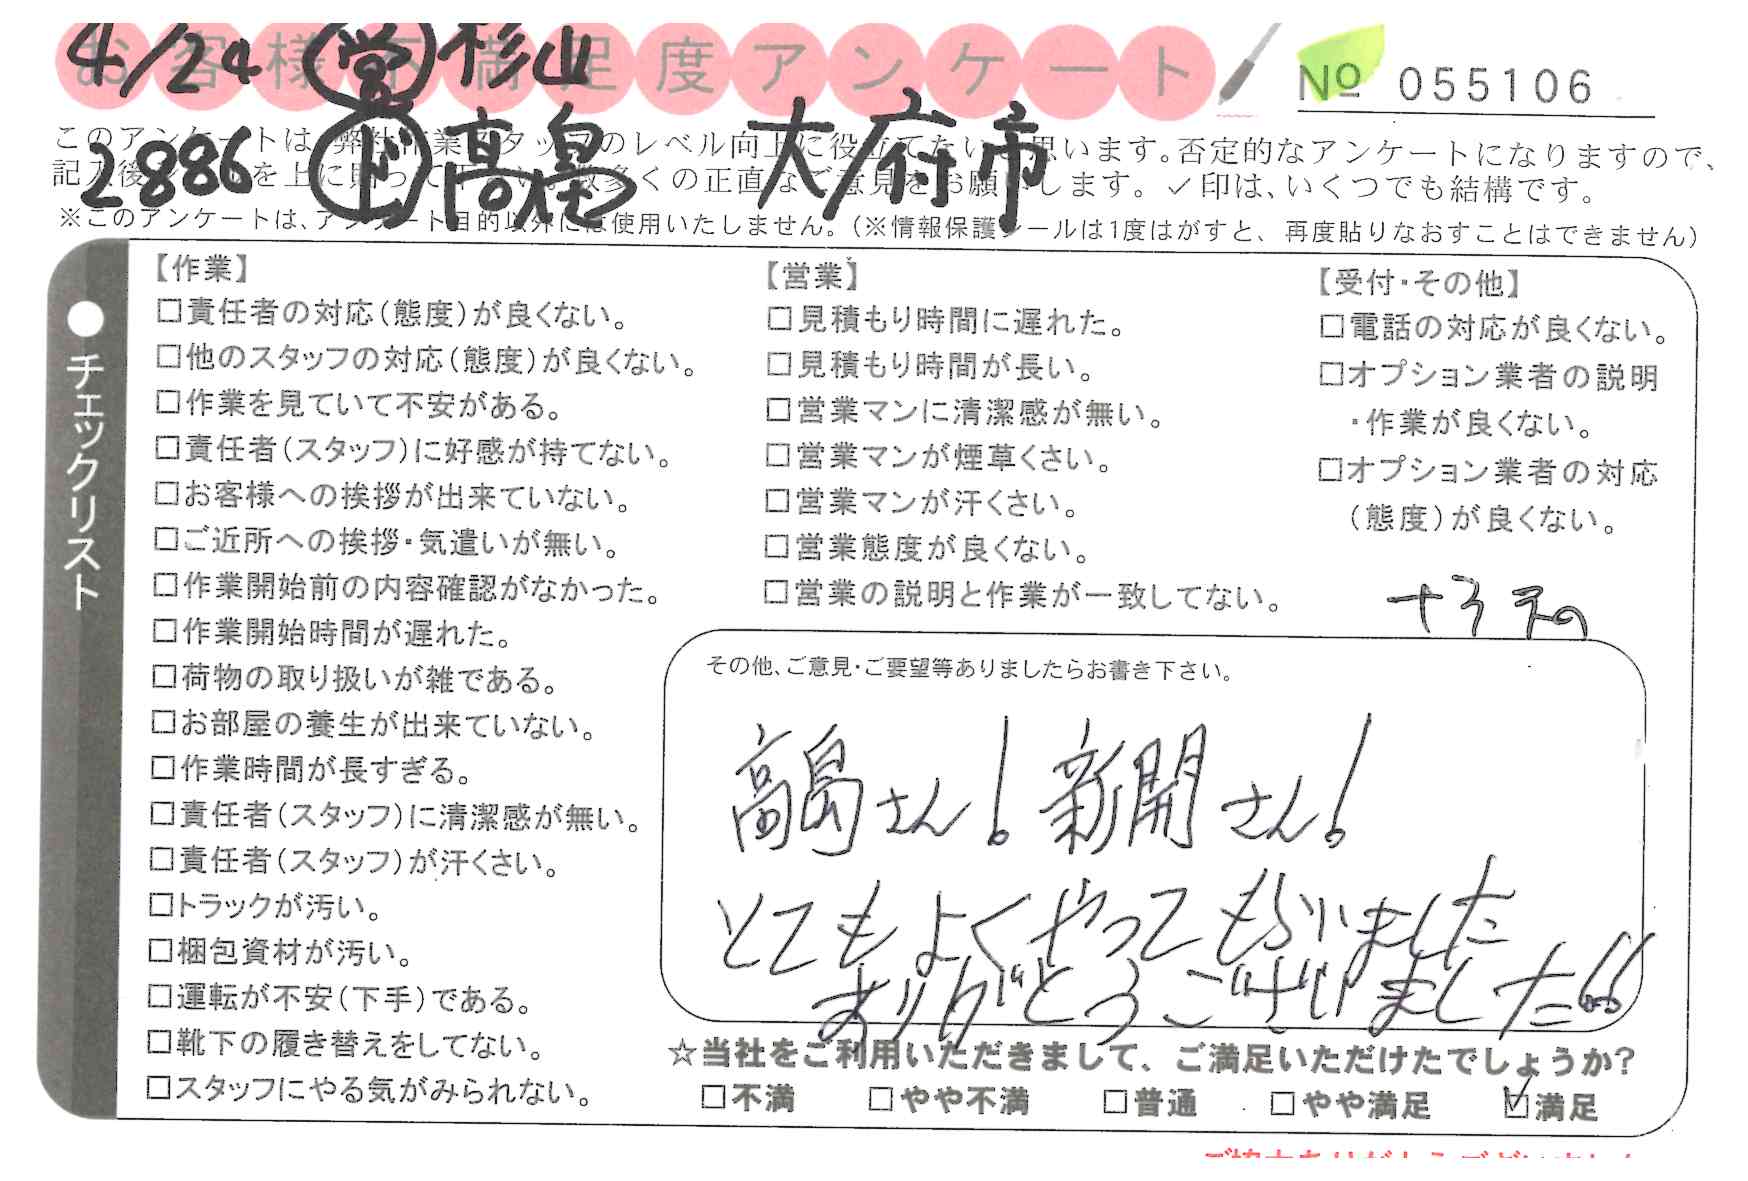 お客様不満足度アンケート
4/24 営 杉山
№ 055106
2886 高島 大府市
このアンケートは、弊社作業スタッフのレベル向上に役立てたいと思います。否定的なアンケートになりますので、
記入後シールを上に貼って下さい。数多くの正直なご意見をお願いします。✓印は、いくつでも結構です。
※このアンケートは、アンケート目的以外には使用いたしません。(※情報保護シールは1度はがすと、再度貼りなおすことはできません)
●チェックリスト
【作業】
□責任者の対応(態度)が良くない。
□他のスタッフの対応(態度)が良くない。
□作業を見ていて不安がある。
□責任者(スタッフ)に好感が持てない。
□お客様への挨拶が出来ていない。
□ご近所への挨拶・気遣いが無い。
□作業開始前の内容確認がなかった。
□作業開始時間が遅れた。
□荷物の取り扱いが雑である。
□お部屋の養生が出来ていない。
□作業時間が長すぎる。
□責任者(スタッフ)に清潔感が無い。
□責任者(スタッフ)が汗くさい。
□トラックが汚い。
□梱包資材が汚い。
□運転が不安(下手)である。
□靴下の履き替えをしてない。
□スタッフにやる気がみられない。
【営業】
□見積もり時間に遅れた。
□見積もり時間が長い。
□営業マンに清潔感が無い。
□営業マンが煙草くさい。
□営業マンが汗くさい。
□営業態度が良くない。
□営業の説明と作業が一致してない。
【受付・その他】
□電話の対応が良くない。
□オプション業者の説明
・作業が良くない。
□オプション業者の対応
(態度)が良くない。
その他、ご意見・ご要望等ありましたらお書き下さい。
高島さん! 新開さん!
とてもよくやってもらいました
ありがとうございました
☆当社をご利用いただきまして、ご満足いただけたでしょうか?
□不満 □やや不満 □普通 □やや満足 ☑満足